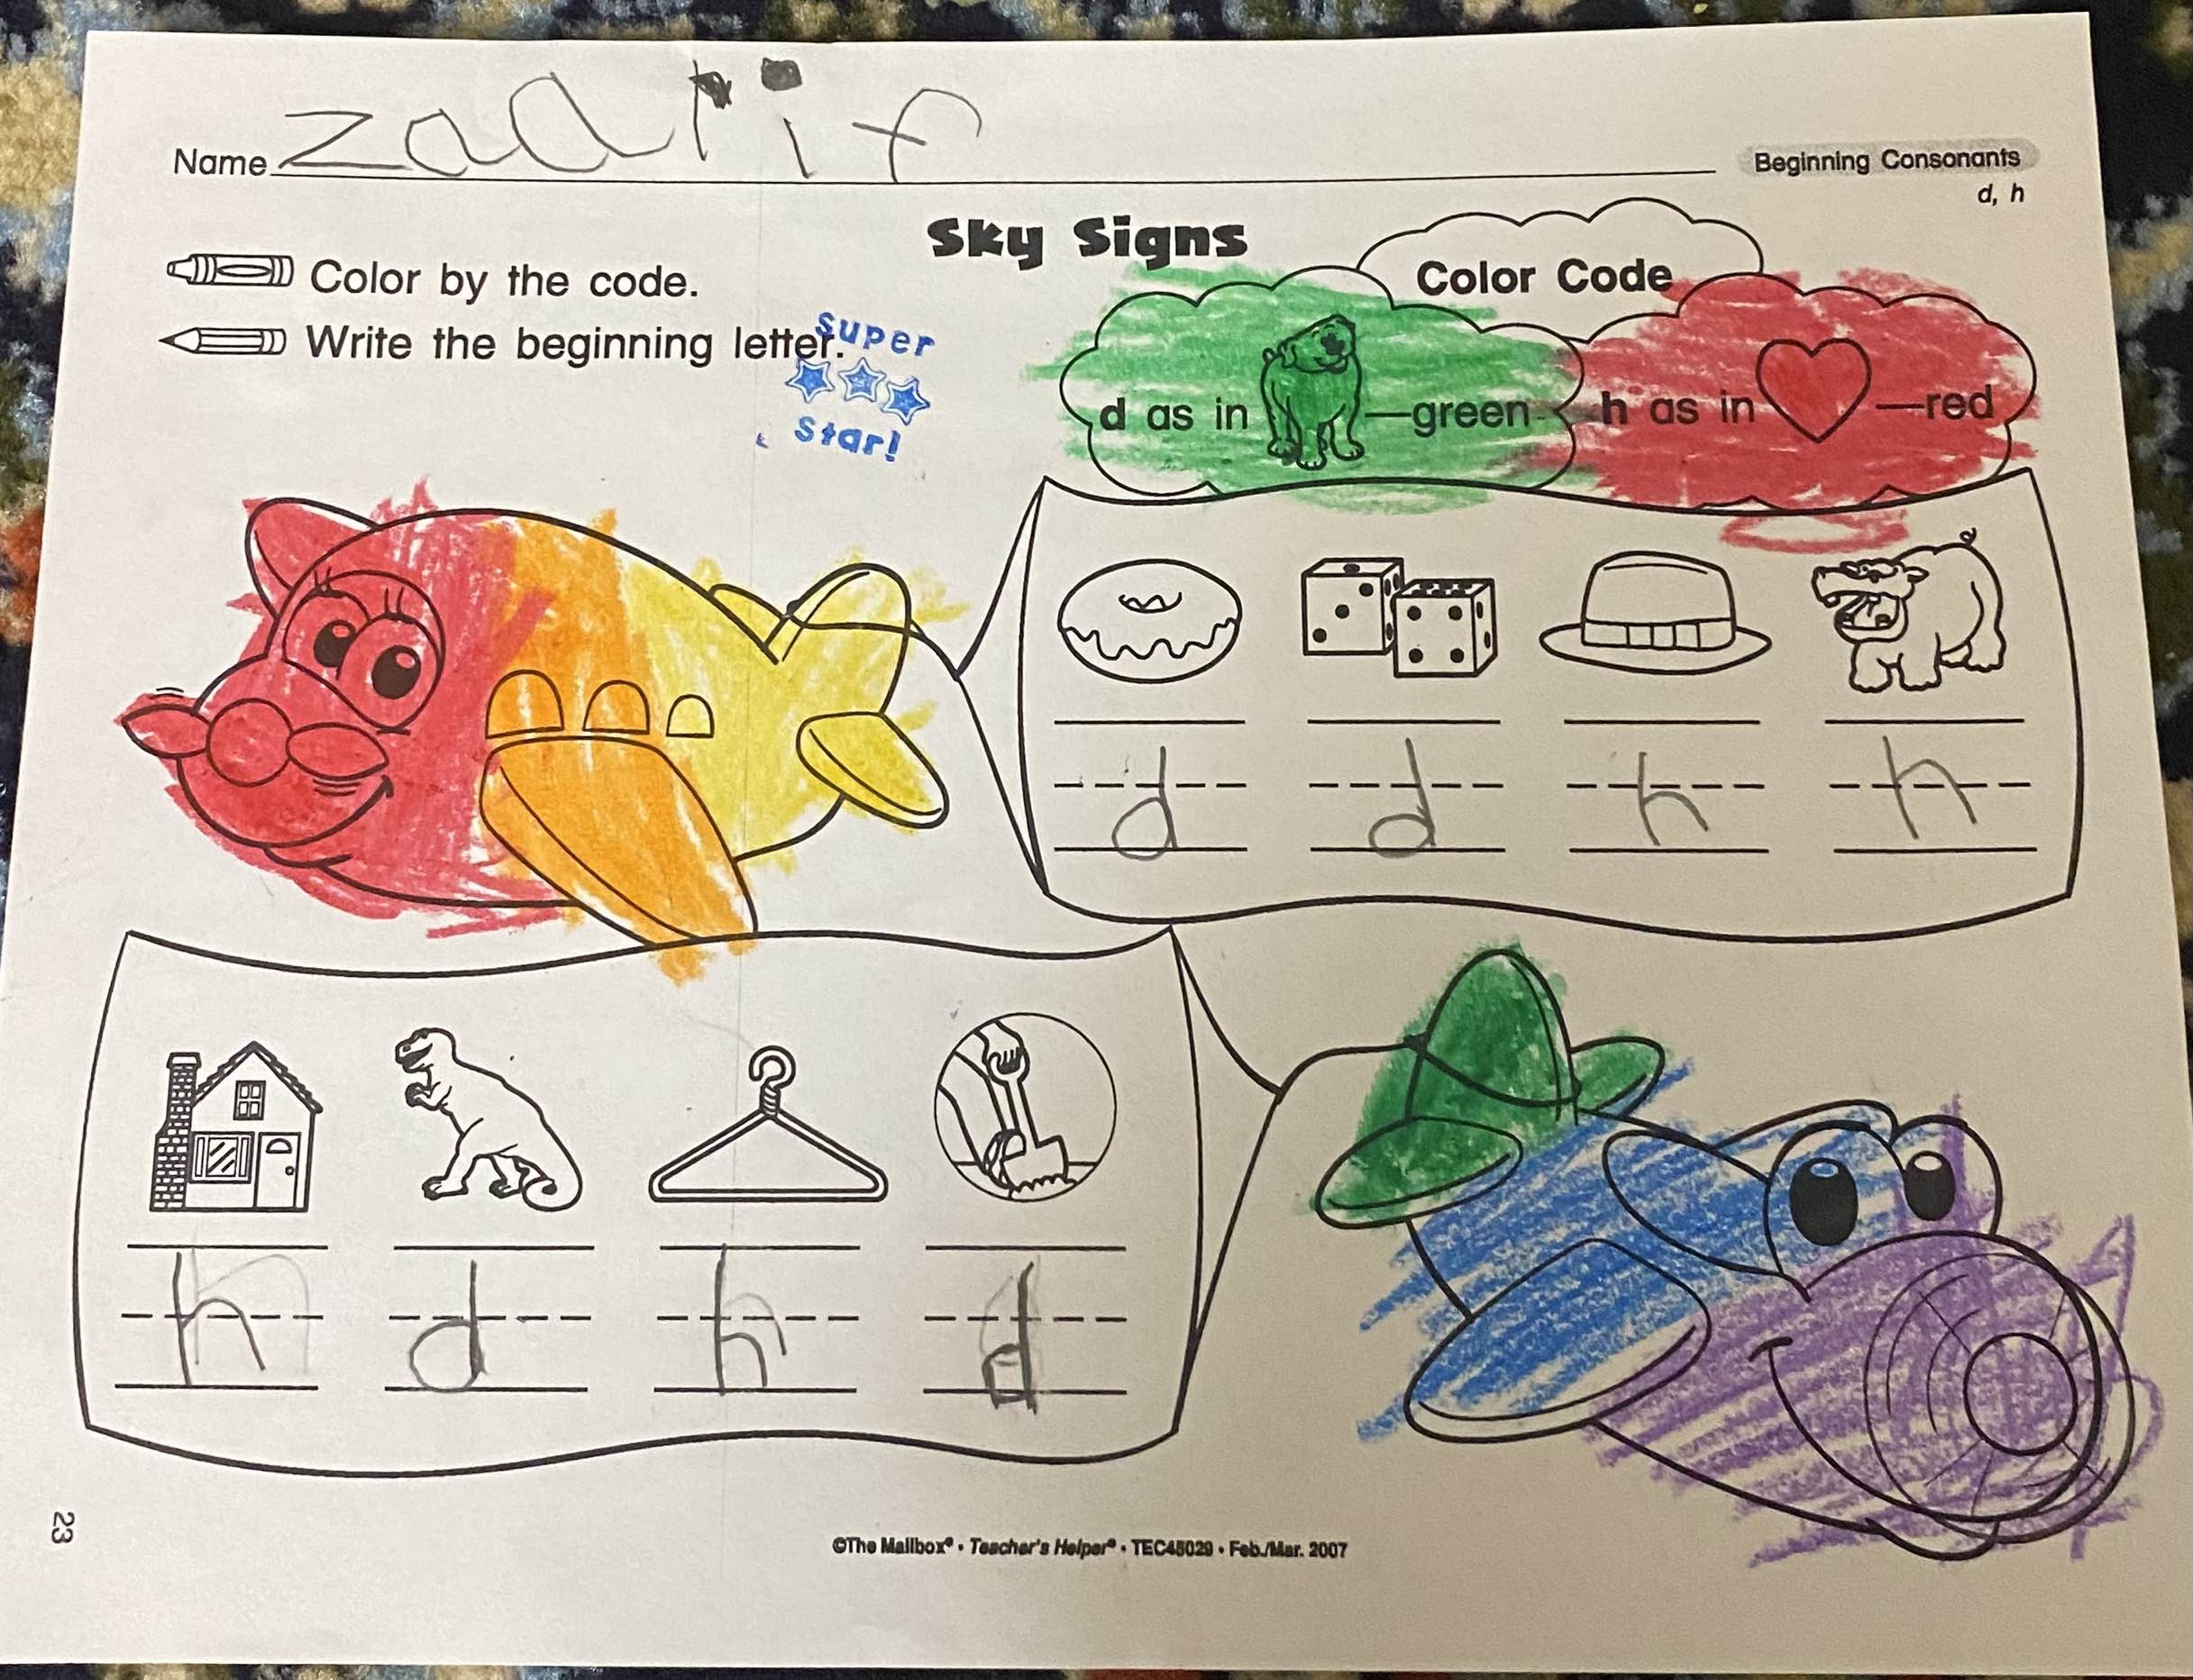 Name zadrif
Beginning Consonants
d, h
Sky Signs
Color by the code.
Write the beginning letter.
Super
Star!
Color Code
d as in —green
h as in —red
d d h h
h d h d
23
©The Mailbox® • Teacher's Helper® • TEC45029 • Feb./Mar. 2007